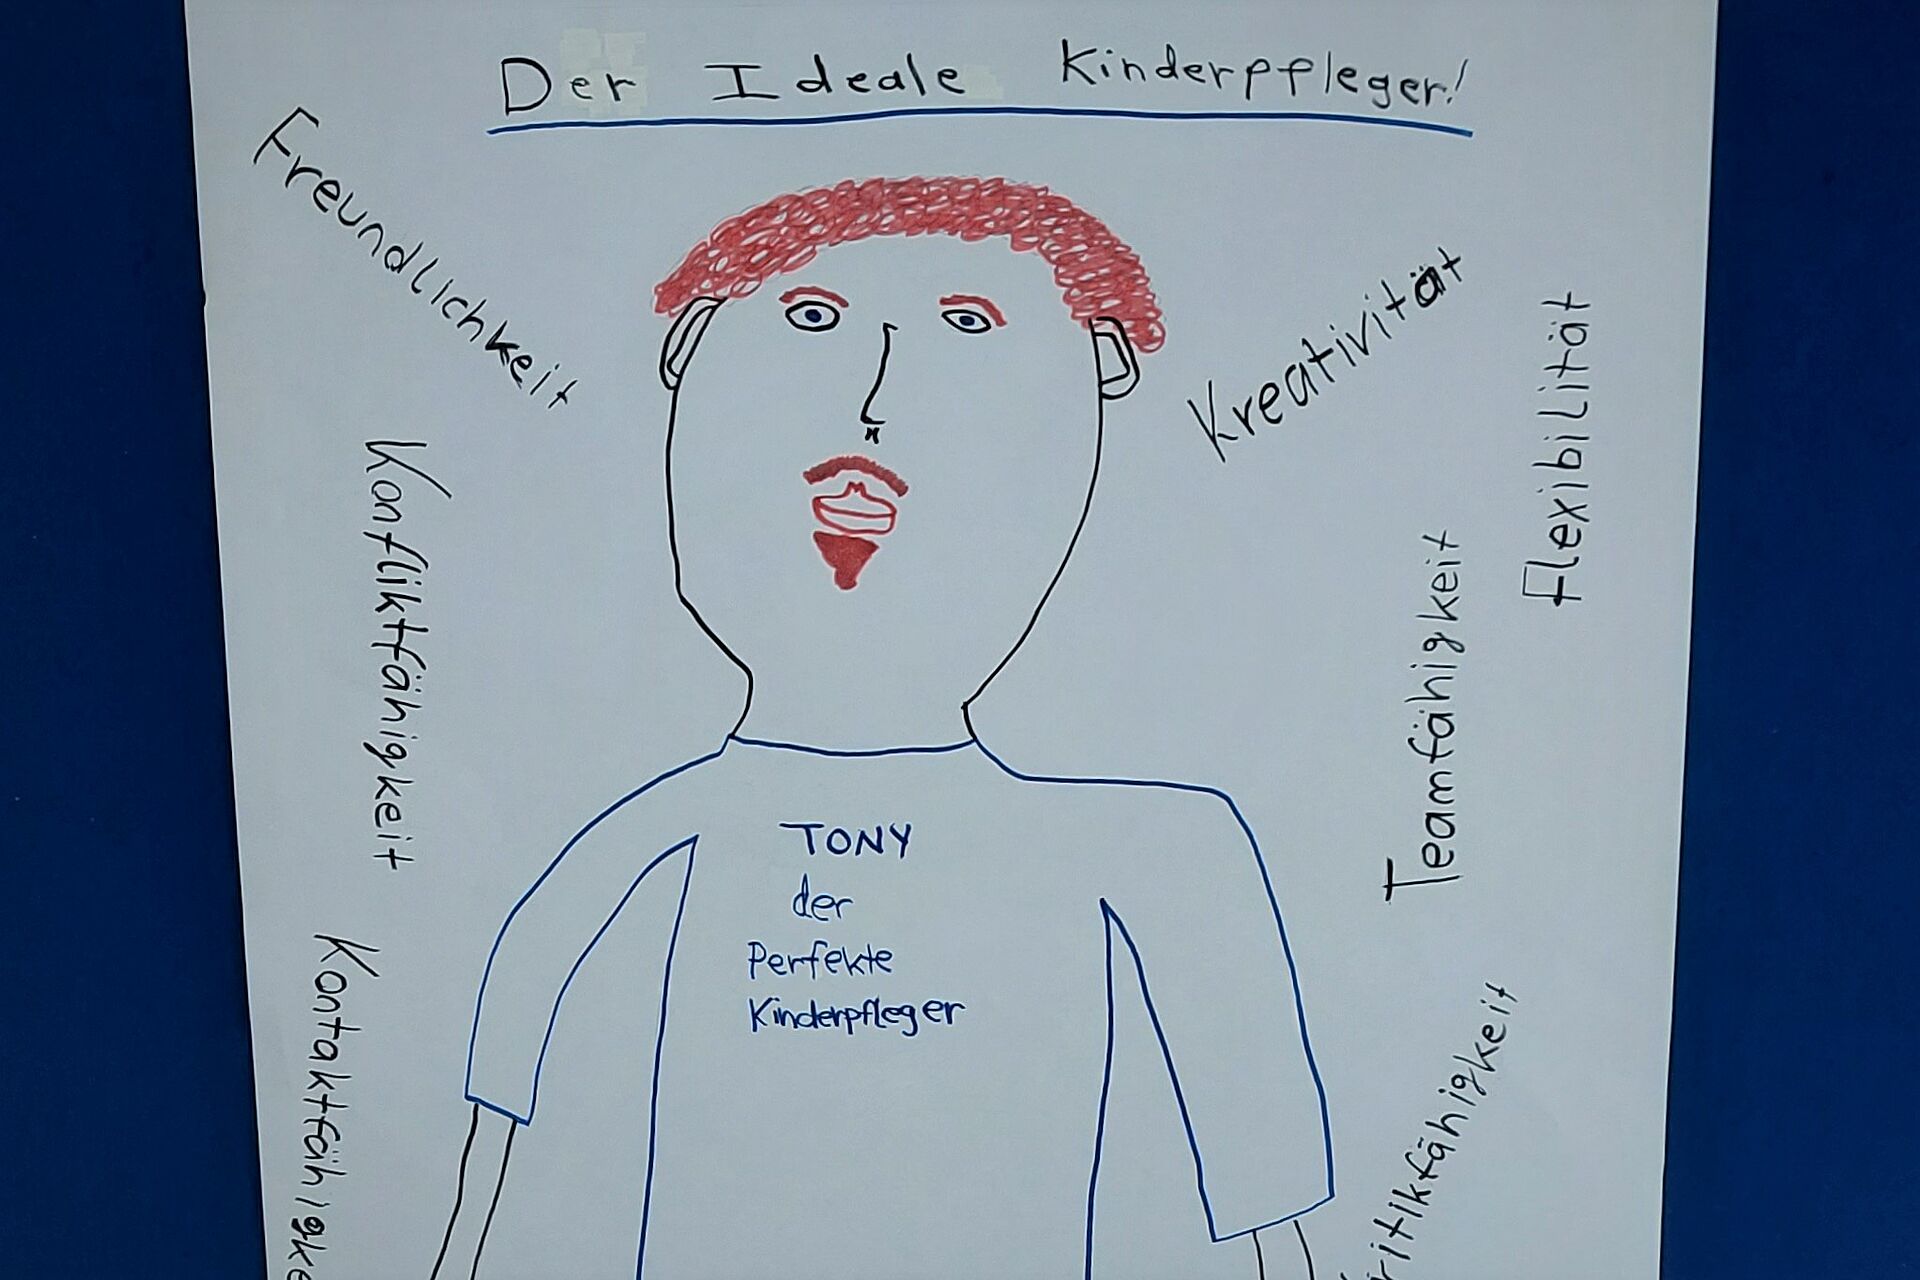 Der Ideale Kinderpfleger!
Freundlichkeit
Konfliktfähigkeit
Kontaktfähigke
Kreativität
Flexibilität
Teamfähigkeit
ritikfähigkeit
TONY
der
Perfekte
Kinderpfleger